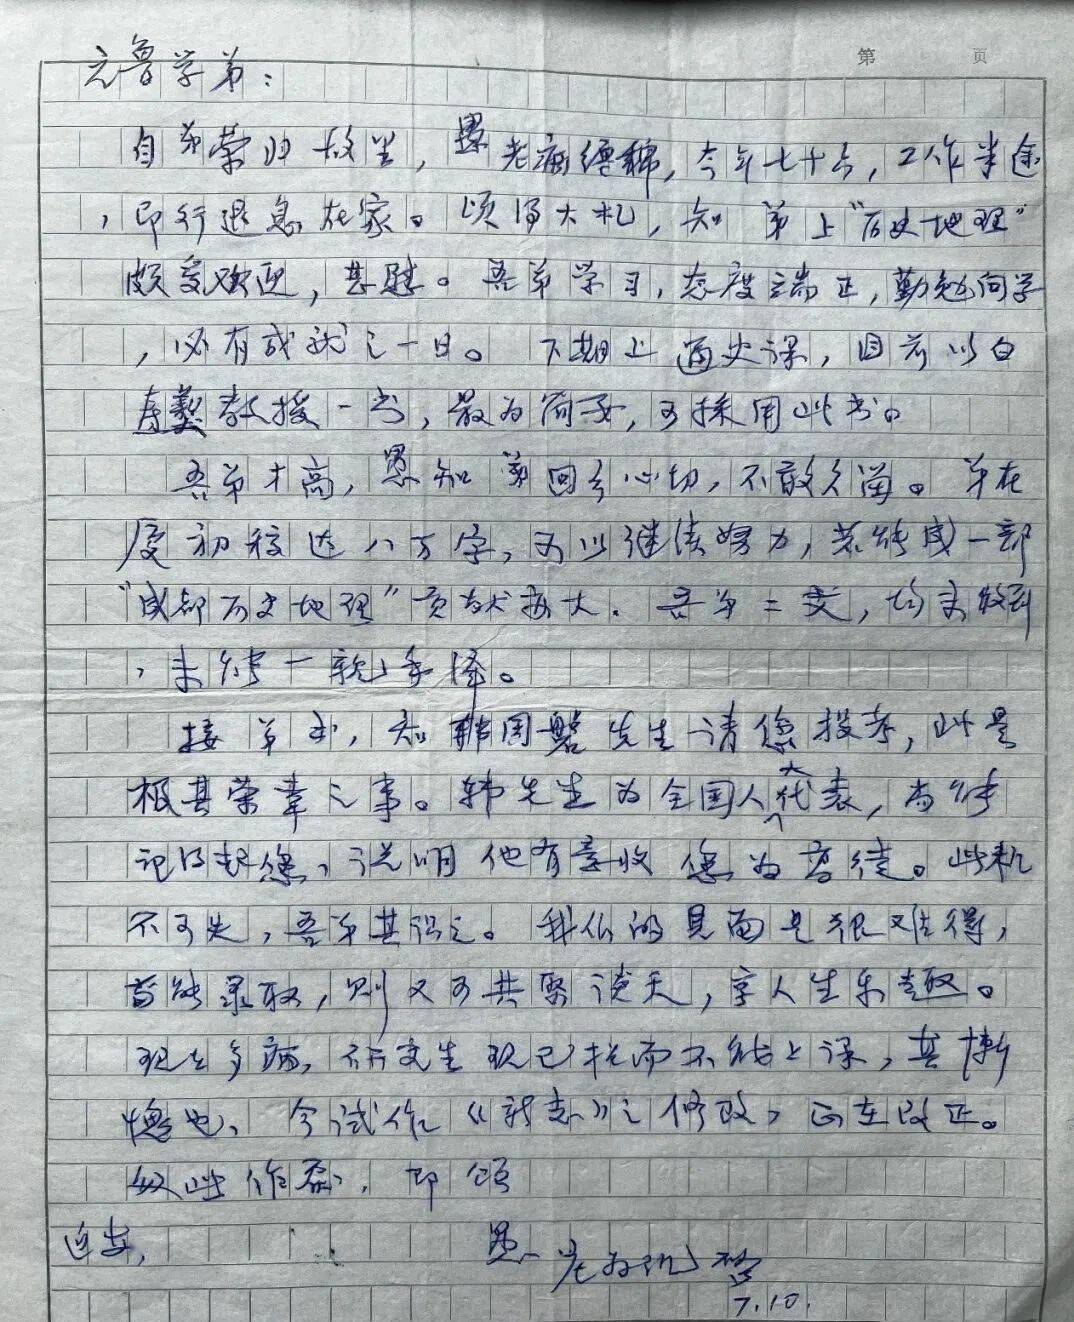 第 页
元鲁学弟：
自弟荣归故里，愚老病缠绵，今年七十六，工作半途
，即行退息在家。顷得大札，知 弟上“历史地理”
颇受欢迎，甚慰。吾弟学习，态度端正，勤勉向学
，必有成就之一日。下期上通史课，目前以白
寿彝教授一书，最为简要，可採用此书。
吾弟才高，愚知 弟回乡心切，不敢久留。弟在
厦初稿达八万字，可以继续努力，若能成一部
“成都历史地理”贡献甚大。吾弟二 ，均未收到
，未能一亲手泽。
接弟书，知韩国磐先生请您投考，此是
极其荣幸之事。韩先生为全国人大代表，尚能
记得起您，说明他有意收 您为高徒。此机
不可失，吾弟其识之。我们的见面是很难得，
若能录取，则又可共聚谈天，享人生乐趣。
现在多病，研究生现已 而不能上课，甚惭
愧也，今试作《新志》之修改，正在改正。
作 ，即颂
近安，
愚 启
7.10.